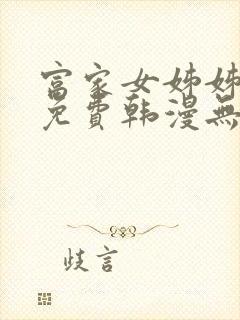 富家女姊姊
免費韩漫無
歧言